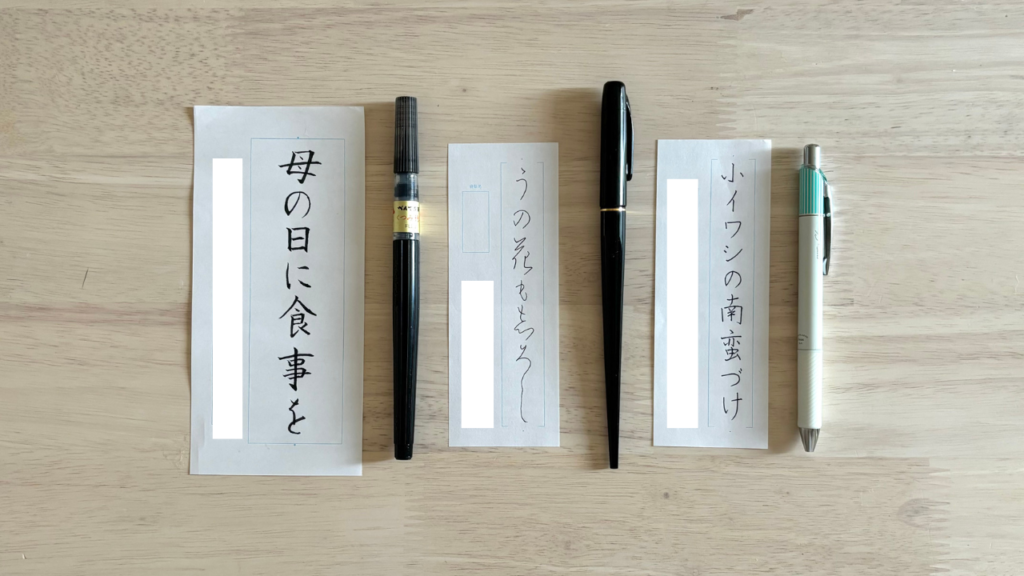 母の日に食事を
うの花も志ろし
小イワシの南蛮づけ